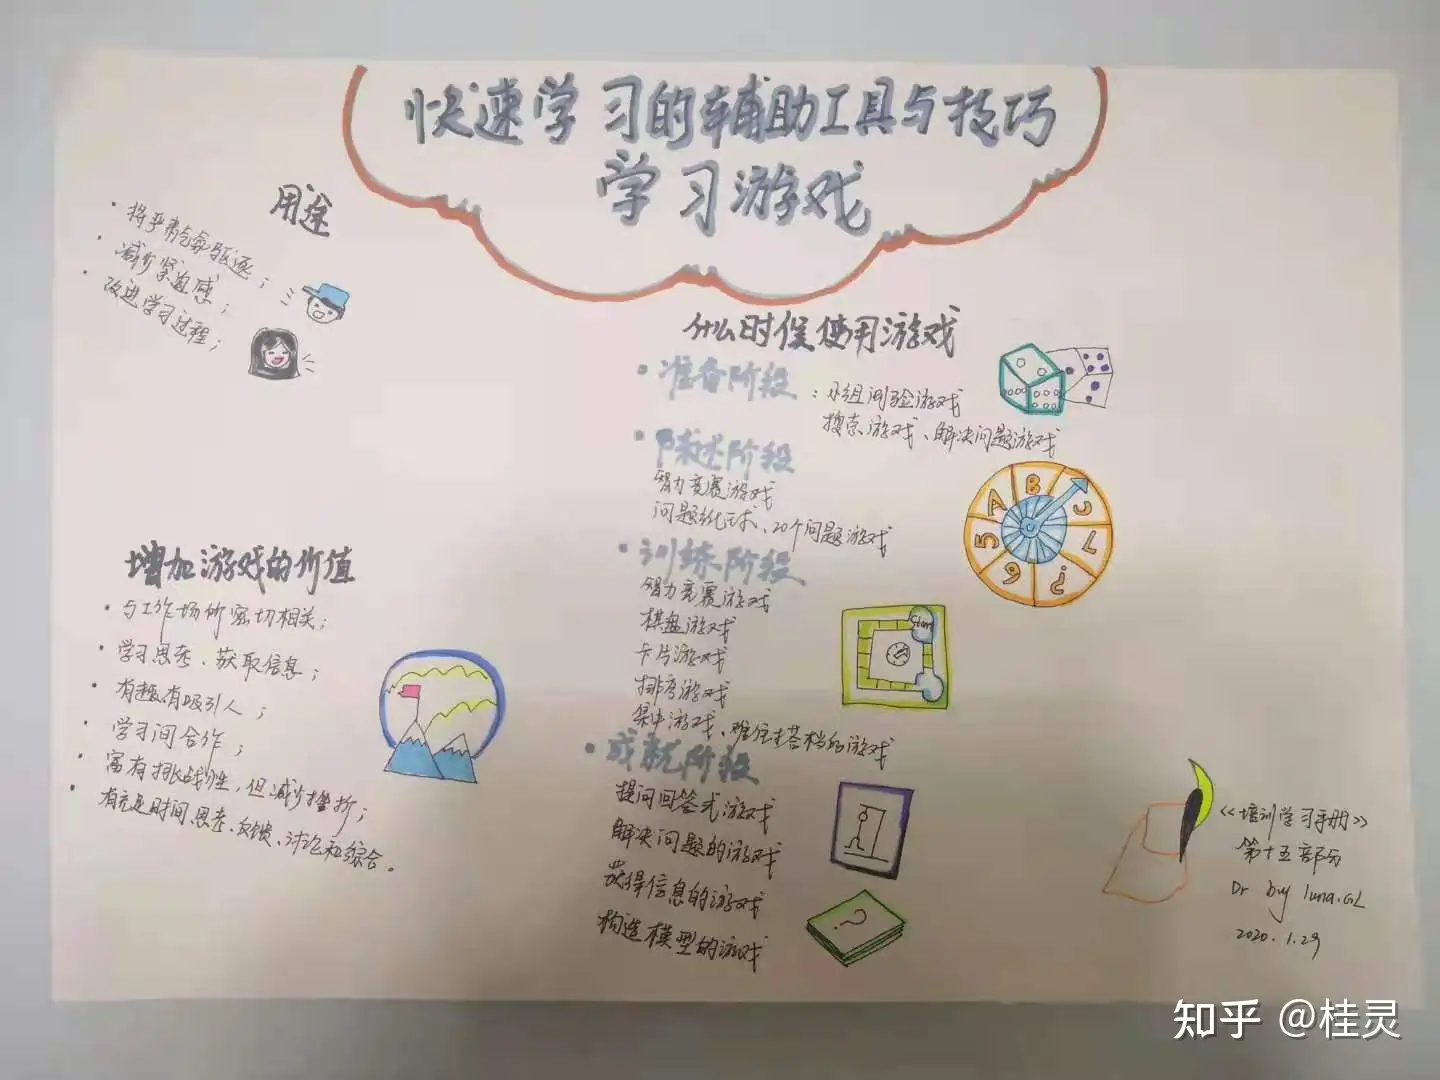 快速学习的辅助工具与技巧
学习游戏
用途
将严肃气氛驱逐；
减少紧迫感；
改进学习过程；
什么时候使用游戏
准备阶段：小组间验游戏
搜索游戏、解决问题游戏
陈述阶段
智力竞赛游戏
问题、20个问题游戏
训练阶段
智力竞赛游戏
棋盘游戏
卡片游戏
排序游戏
集中游戏、难住搭档的游戏
成就阶段
提问回答式游戏
解决问题的游戏
获得信息的游戏
构造模型的游戏
增加游戏的价值
与工作场所密切相关；
学习思考、获取信息；
有趣有吸引人；
学习间合作；
富有挑战性，但减少挫折；
有充足时间思考、反馈、讨论和综合。
A B C 7 ? 6 5
Start
?
《培训学习手册》
第十五部分
Dr by luna.GL
2020.1.29
知乎 @桂灵